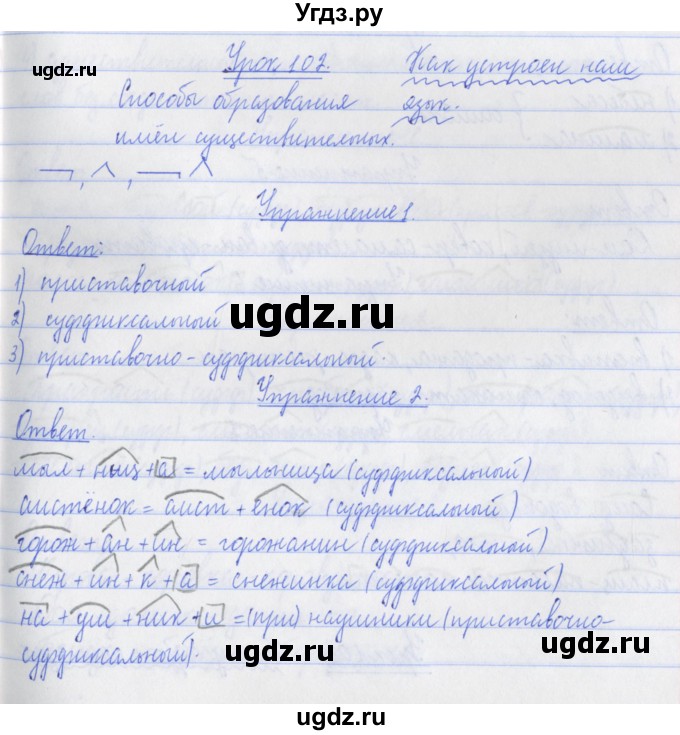 Угдз.ру
Урок 102. Как устроен наш
Способы образования язык.
имён существительных.
Упражнение 1.
Ответ:
1) приставочный
2) суффиксальный
3) приставочно-суффиксальный.
Упражнение 2.
Ответ.
мыл + ниц + а = мыльница (суффиксальный)
аистёнок = аист + ёнок (суффиксальный)
горож + ан + ин = горожанин (суффиксальный)
снеж + ин + к + а = снежинка (суффиксальный)
на + уш + ник + и = (при) наушники (приставочно-
суффиксальный).
ugdz.ru
ugdz.ru
ugdz.ru
ugdz.ru
ugdz.ru
ugdz.ru
ugdz.ru